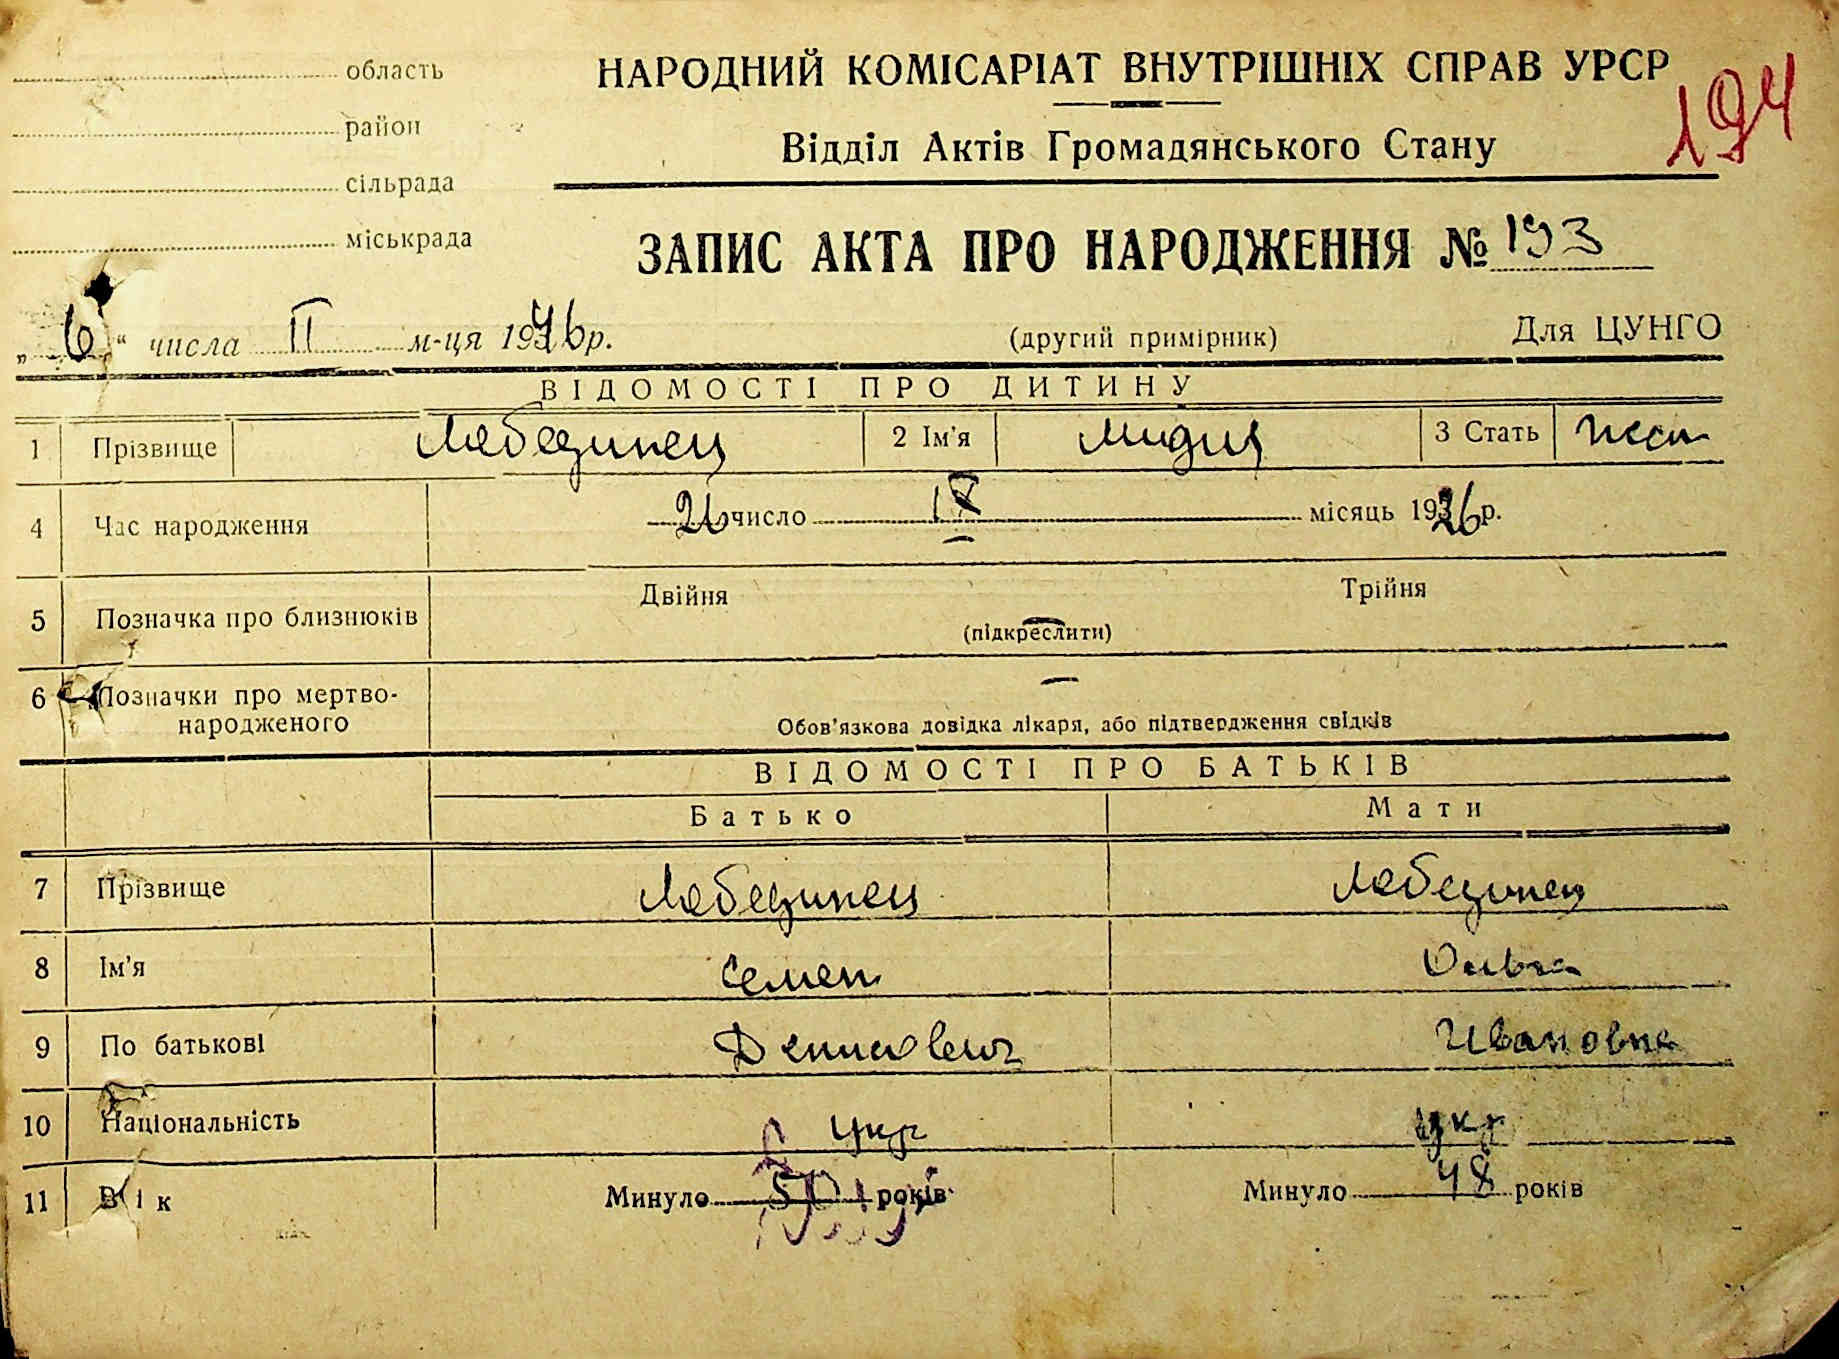 область
район
сільрада
міськрада
НАРОДНИЙ КОМІСАРІАТ ВНУТРІШНІХ СПРАВ УРСР
194
Відділ Актів Громадянського Стану
ЗАПИС АКТА ПРО НАРОДЖЕННЯ № 193
„6“ числа II м-ця 1946 р.
(другий примірник)
Для ЦУНГО
ВІДОМОСТІ ПРО ДИТИНУ
1 Прізвище Лебединец 2 Ім'я Лидия 3 Стать жен
4 Час народження 26 число IX місяць 1926 р.
5 Позначка про близнюків Двійня Трійня
(підкреслити)
6 Позначки про мертво-
народженого
Обов'язкова довідка лікаря, або підтвердження свідків
ВІДОМОСТІ ПРО БАТЬКІВ
Батько Мати
7 Прізвище Лебединец Лебединец
8 Ім'я Семен Ольга
9 По батькові Денисович Ивановна
10 Національність укр укр
11 Вік Минуло 50 років Минуло 48 років